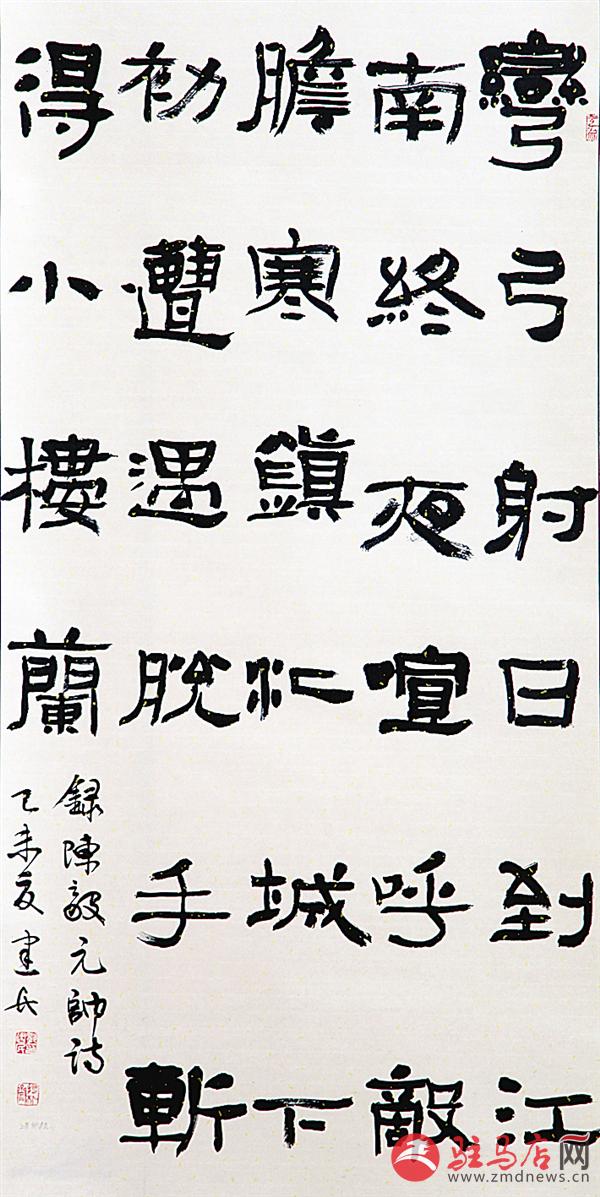 彎弓射日到江
南終夜喧呼敵
膽寒鎮江城下
初遭遇脫手斬
得小樓蘭
録陳毅元帥詩
乙未夏建
驻马店网
www.zmdnews.cn